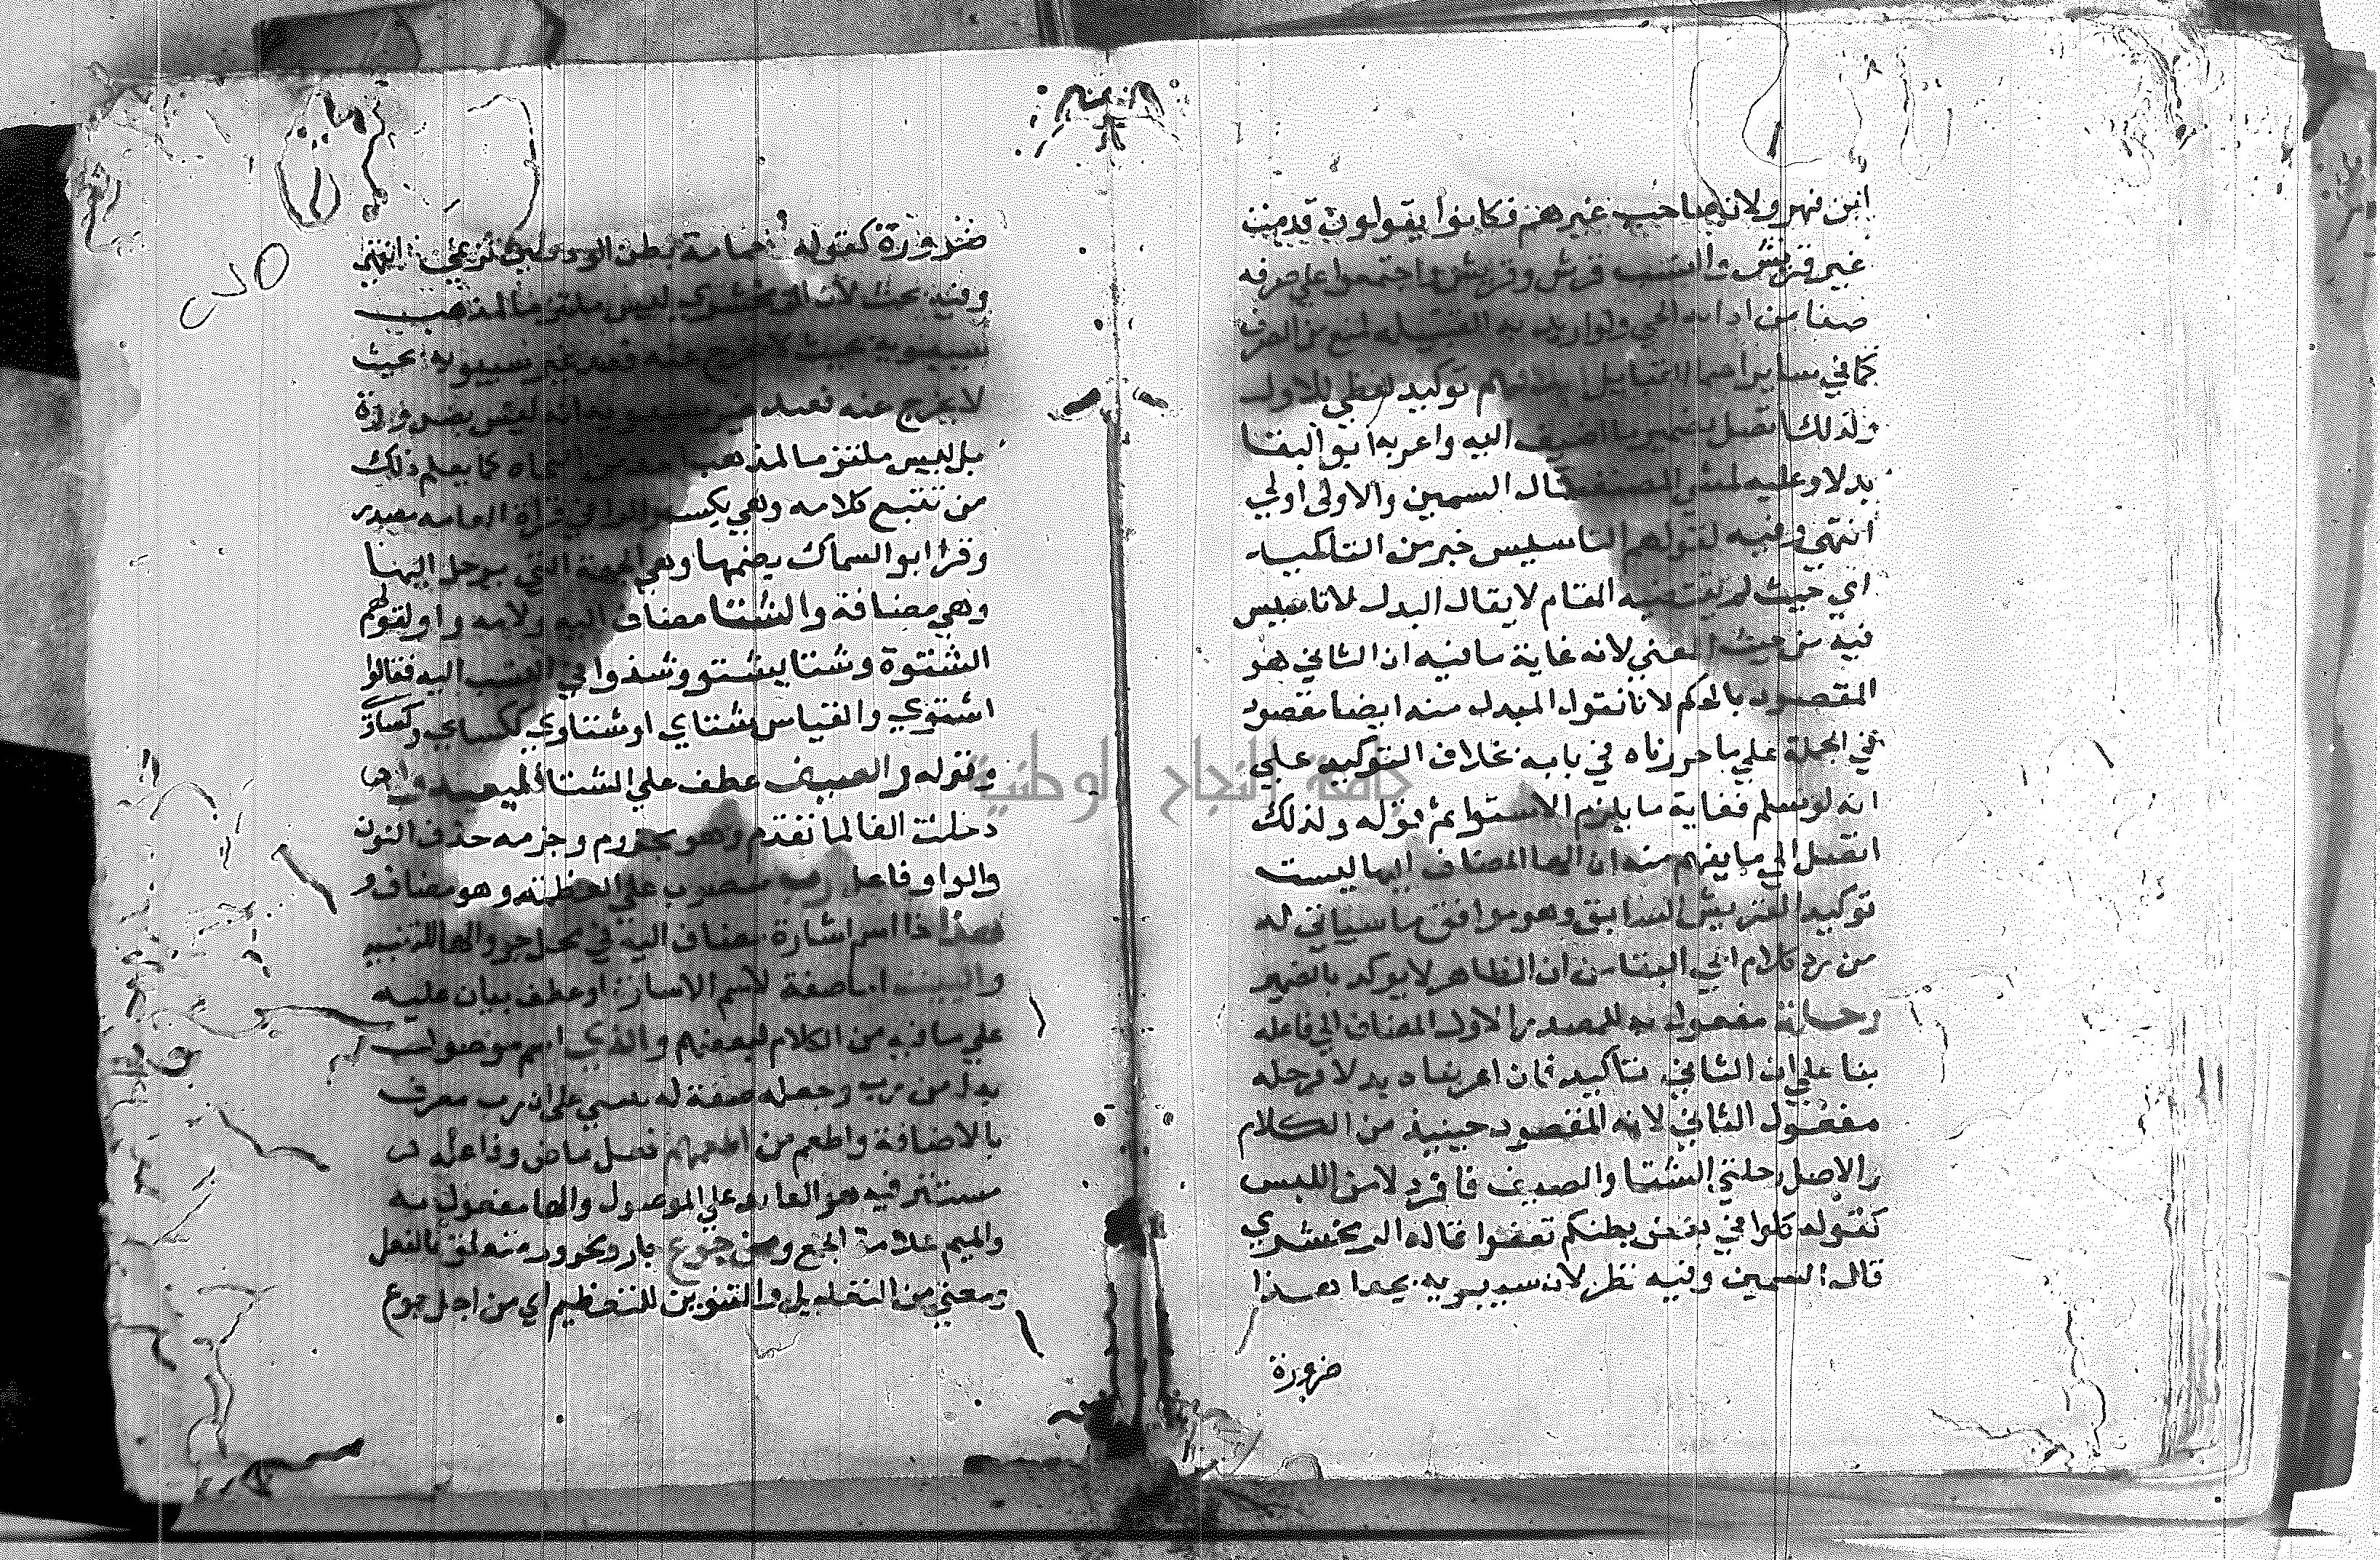 ابن فهر ولانه صاحب غيرهم فكانوا يقولون قدمت
غير قريش والنسب قرش وقريش واجتمعوا علي صرفه
صفا من اداته الحي ولو اريد به القبيله لمنع من الصرف
كما في ساير اسما القبايل توكيد لفظي للاول
ولذلك اتصل بضمير ما اضيف اليه واعربه ابو البقا
بدلا وعليه قال السمين والاولى اولي
انتهي وفيه لقولهم التاسيس خير من التاكيد
اي حيث لم يقتضيه المقام لا يقال البدل لا تاسيس
فيه من حيث المعني لانه غاية ما فيه ان الثاني هو
المقصود بالحكم لانا نقول المبدل منه ايضا مقصود
في الجملة علي ما حررناه في بابه بخلاف التوكيد علي
انه لو سلم فغاية ما يلزم الاستوا ثم قوله ولذلك
اتصل الي ما يفهم منه ان الها المضاف اليها ليست
توكيد السابق وهو موافق ما سياتي له
من رد كلام ابي البقا من ان الظاهر لا يوكد بالضمير
رحلة مفعول به للمصدر الاول المضاف الي فاعله
بنا علي ان الثاني تاكيد فان اعربناه بدلا فرحله
مفعول الثاني لانه المقصود حينيذ من الكلام
والاصل رحلتي الشتا والصيف فافرد لامن اللبس
كقوله كلوا في بعض بطنكم تعفوا قاله الزمخشري
قال السمين وفيه نظر لان سيبويه يجعل هذا
ضرورة
ضرورة كقوله حمامة بطن الواديين ترنمي انتهي
وفيه بحث لان الزمخشري ليس ملتزما لمذهب
سيبويه بحيث لا يخرج عنه فعند غير سيبويه بحيث
لا يخرج عنه فعند غير سيبويه انه ليس بضرورة
بل ليس ملتزما لمذهب احد من النحاه كما يعلم ذلك
من تتبع كلامه وهي بكسر الرا في قراة العامه مصدر
وقرا ابو السماك بضمها وهي الجهة التي يرحل اليها
وهي مضافة والشتا مضاف اليه ولامه واو لقولهم
الشتوة وشتا يشتو وشذوا في النسب اليه فقالوا
اشتوي والقياس شتاي او شتاوي ككساي وكساوي
وقوله والصيف عطف علي الشتا فليعبدوا
دخلت الفا لما تقدم وهو مجزوم وجزمه حذف النون
والواو فاعل رب منصوب علي وهو مضاف و
هذا ذا اسم اشارة مضاف اليه في محل جر والها للتنبيه
والبيت اما صفة لاسم الاشارة او عطف بيان عليه
علي ما فيه من الكلام لبعضهم والذي اسم موصول
بدل من رب وجعله صفة له مبني علي ان رب معرف
بالاضافة واطعم من اطعمهم فعل ماض وفاعله
مستتر فيه هو العايد علي الموصول والها مفعول به
والميم علامة الجمع ومن جوع جار ومجرور متعلق بالفعل
ومعني من التعليل والتنوين للتعظيم اي من اجل جوع
جامعة النجاح الوطنية